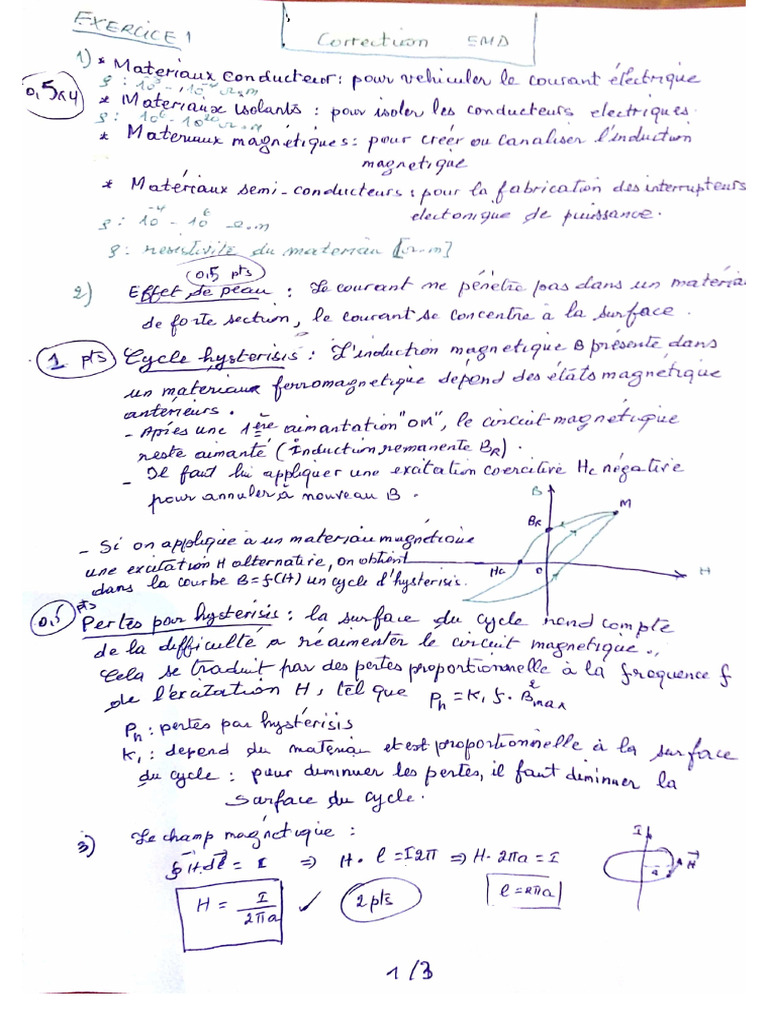 EXERCICE 1
Correction EMD
1) * Materiaux conducteur : pour vehiculer le courant électrique
0,5x4
ρ : 10⁻³ , 10⁻⁴ Ω.m
* Materiaux isolants : pour isoler les conducteurs electriques.
ρ : 10⁶ - 10²⁰ Ω.m
* Materiaux magnétiques : pour créer ou canaliser l'induction
magnetique
* Matériaux semi-conducteurs : pour la fabrication des interrupteurs
électonique de puissance.
ρ : 10⁻⁴ - 10⁶ Ω.m
ρ : resistivité du materiau [Ω.m]
(0,5 pts)
2) Effet de peau : Le courant ne pénètre pas dans un materia
de forte section, le courant se concentre à la surface.
1 pts Cycle hysterisis : L'induction magnetique B présente dans
un materiaux ferromagnetique dépend des états magnétique
antérieurs.
- Après une 1ère aimantation "OM", le circuit magnétique
reste aimanté (Induction remanente BR).
- Il faut lui appliquer une exitation coercitive Hc négative
pour annuler à nouveau B.
B
M
BR
Hc
O
H
- Si on applique à un materiau magnétique
une exitation H alternative, on obtient
dans la courbe B=f(H) un cycle d'hysterisis.
0,5 pts
Pertes par hysterisis : la surface du cycle rend compte
de la difficulté a réaimenter le circuit magnetique.
Cela se traduit par des pertes proportionnelle à la frequence f
de l'exitation H, tel que Ph = K1 f. B²max
Ph : pertes par hystérisis
K1 : depend du materiau et est proportionnelle à la surface
du cycle : pour diminuer les pertes, il faut diminuer la
surface du cycle.
3) Le champ magnétique :
∮H.dl = I ⇒ H. l = I2π ⇒ H. 2πa = I
l = 2πa
I
a
H
H = I/2πa ✓ 2 pts
1/3